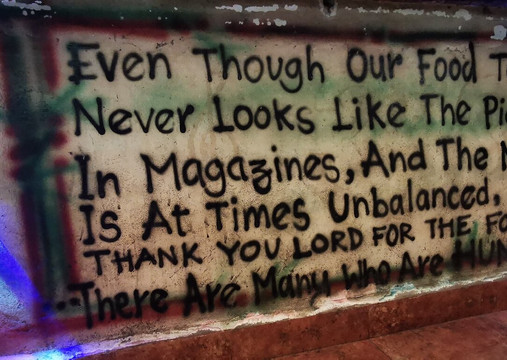 Even Though Our Food
Never Looks Like The
In Magazines, And The
Is At Times Unbalanced,
THANK YOU LORD FOR THE
...There Are Many Who Are